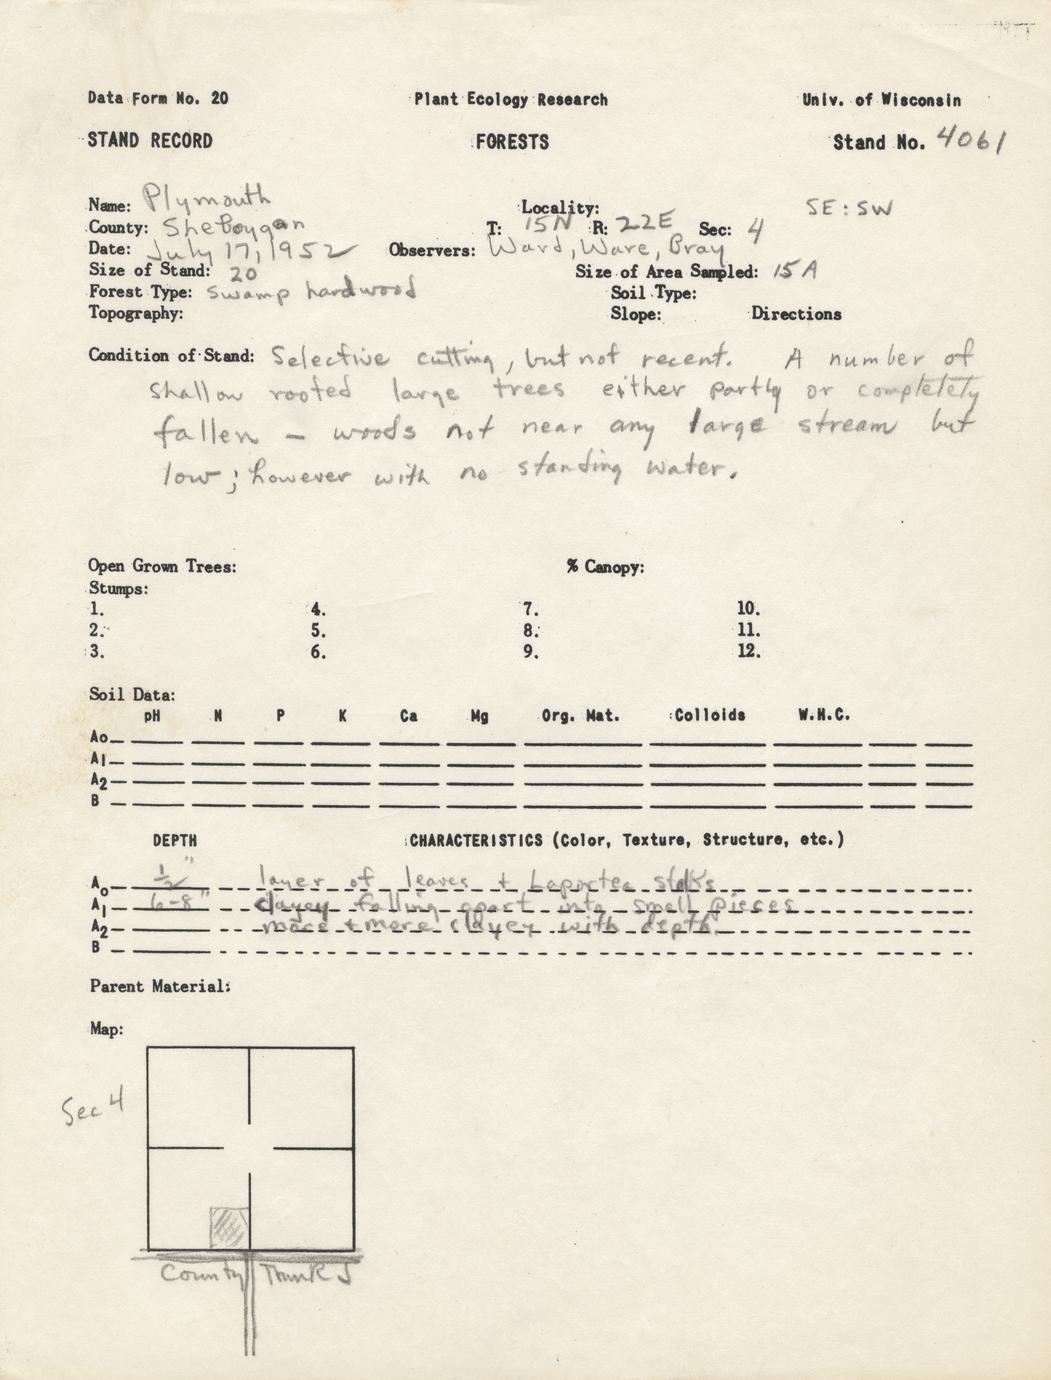 Data Form No. 20 Plant Ecology Research Univ. of Wisconsin
STAND RECORD FORESTS Stand No. 4061
Name: Plymouth Locality: SE:SW
County: Sheboygan T: 15N R: 22E Sec: 4
Date: July 17, 1952 Observers: Ward, Ware, Bray
Size of Stand: 20 Size of Area Sampled: 15A
Forest Type: Swamp hardwood Soil Type:
Topography: Slope: Directions
Condition of Stand: Selective cutting, but not recent. A number of
shallow rooted large trees either partly or completely
fallen – woods not near any large stream but
low; however with no standing water.
Open Grown Trees: % Canopy:
Stumps:
1. 4. 7. 10.
2. 5. 8. 11.
3. 6. 9. 12.
Soil Data:
pH N P K Ca Mg Org. Mat. Colloids W.H.C.
A₀
A₁
A₂
B
DEPTH CHARACTERISTICS (Color, Texture, Structure, etc.)
A₀ ½" layer of leaves + Laportea
A₁ 6-8" clayey falling apart into small pieces
A₂ more + more clayey with depth.
B
Parent Material:
Map:
Sec 4
County Trunk J